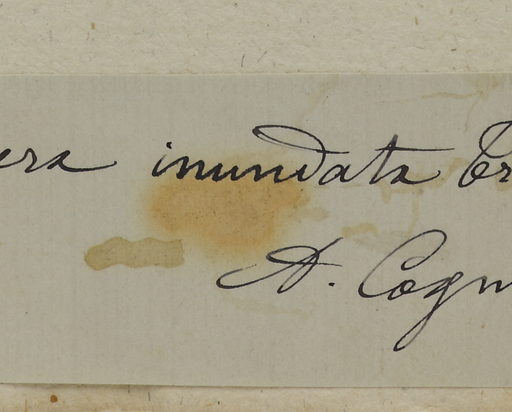 era inundata Tr
A. Cogn